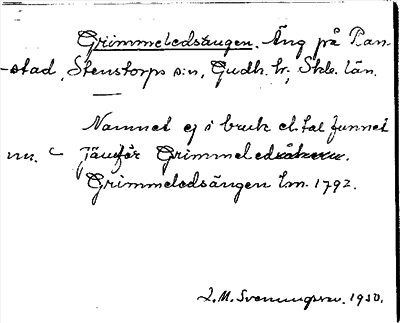 Grimmeledsängen. Äng på Ran-
stad, Stenstorps s:n, Gudh. hr, Skbs. län.
Namnet ej i bruk el. tal funnet
nu. Jämför Grimmeledsåkern.
Grimmeledsängen lm. 1792.
L. M. Svenungsson. 1930.